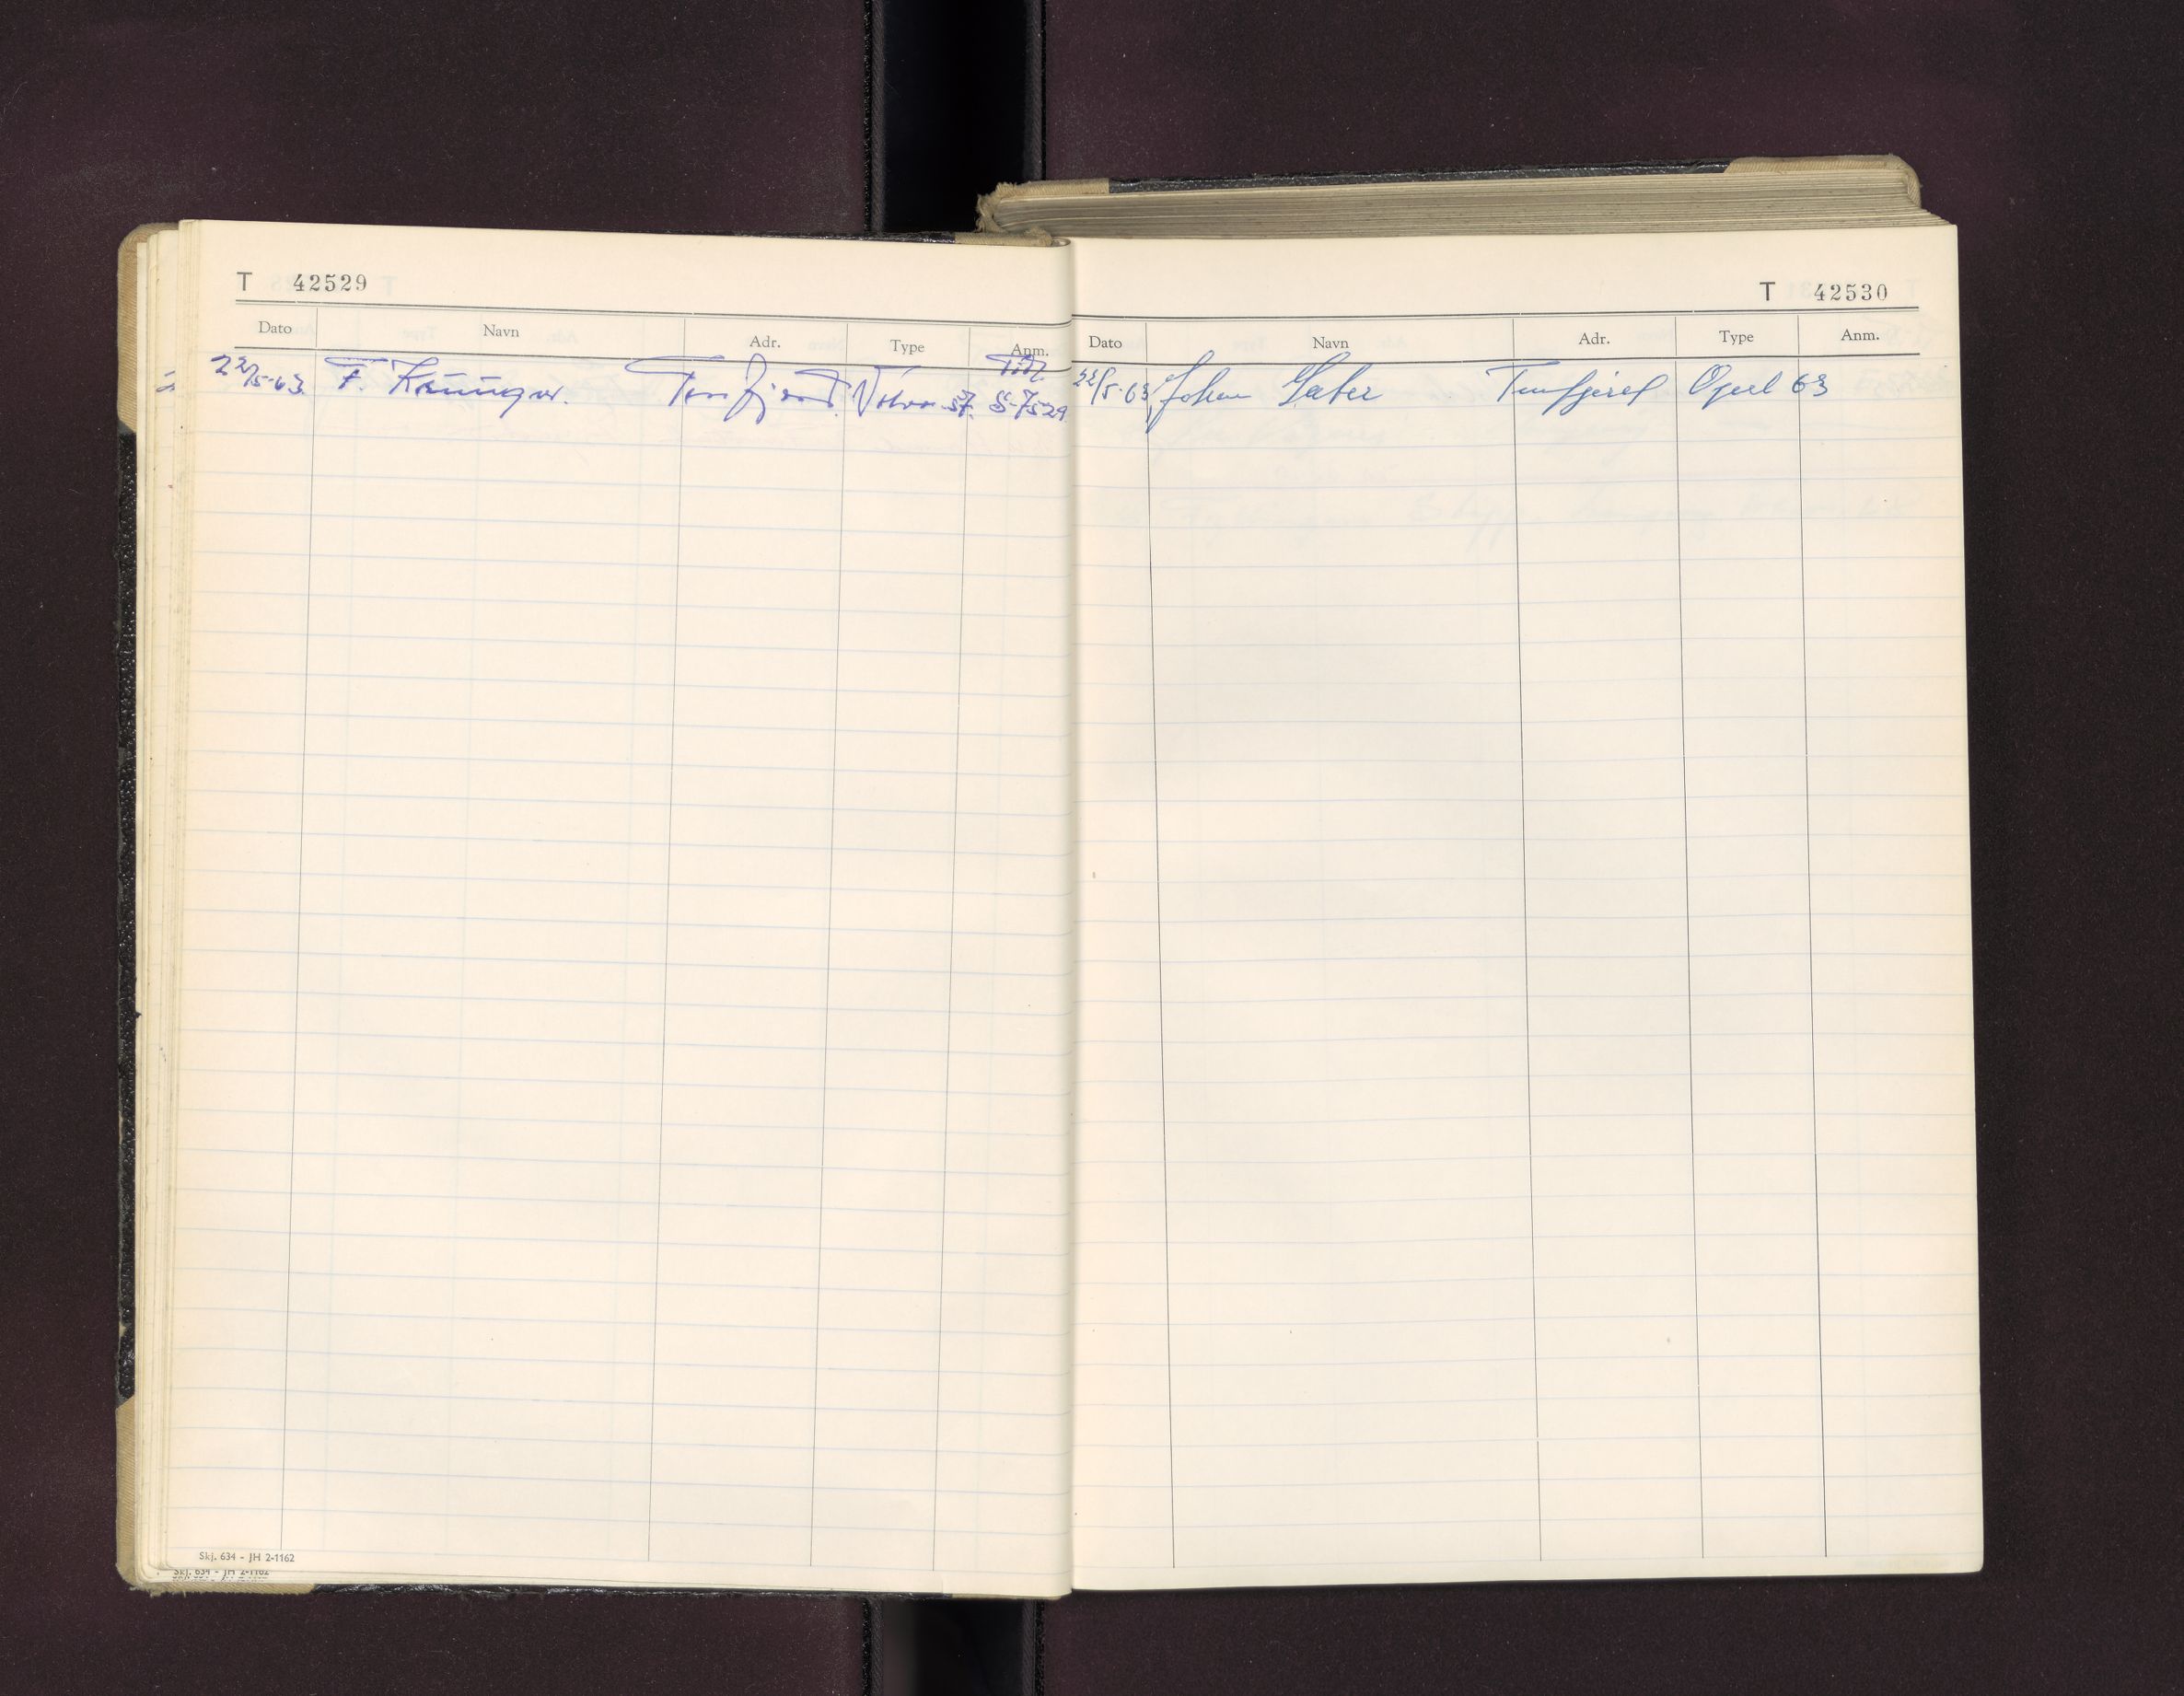 T 42529
Dato Navn Adr. Type Anm.
22/5-63 F. Tomfjord Volvo 57. S-7529
Skj. 634 - JH 2-1162
Skj. 634 - JH 2-1162
T 42530
Dato Navn Adr. Type Anm.
22/5-63 Johan Sæter Tomfjord Opel 63